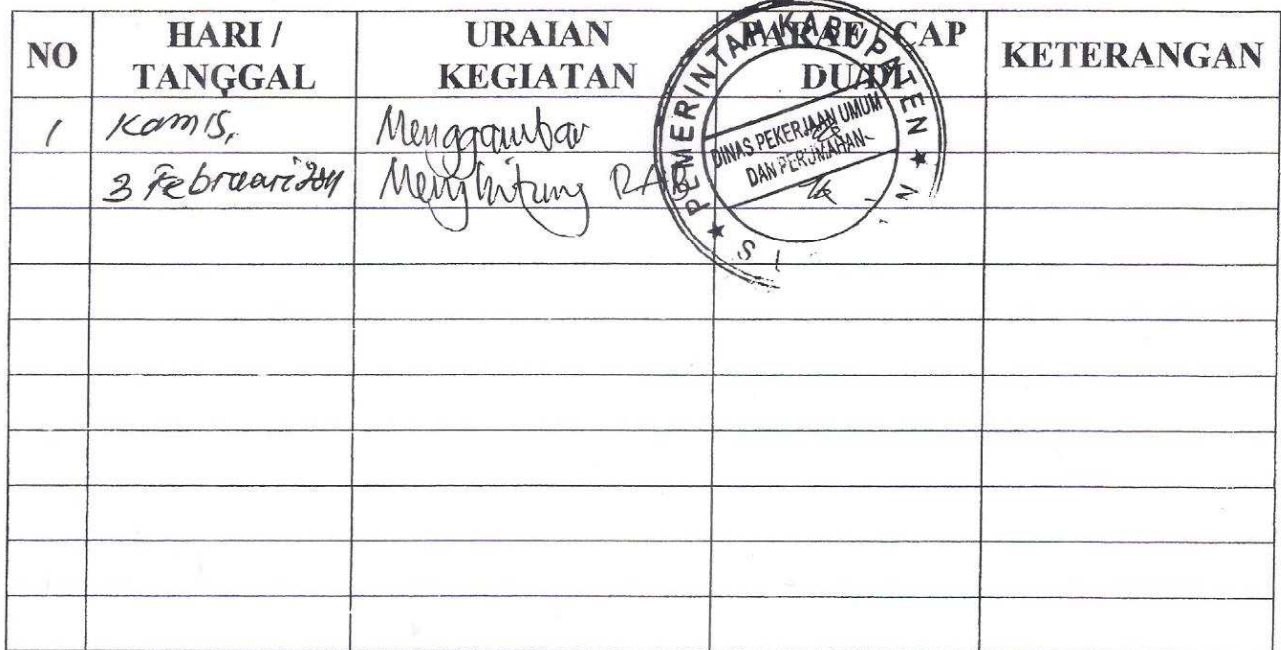 NO
HARI /
TANGGAL
URAIAN
KEGIATAN
PARAF / CAP
DU/DI
KETERANGAN
1
Kamis,
Menggambar
3 Februari 2011
Menghitung RAB
PEMERINTAH KABUPATEN
DINAS PEKERJAAN UMUM
DAN PERUMAHAN